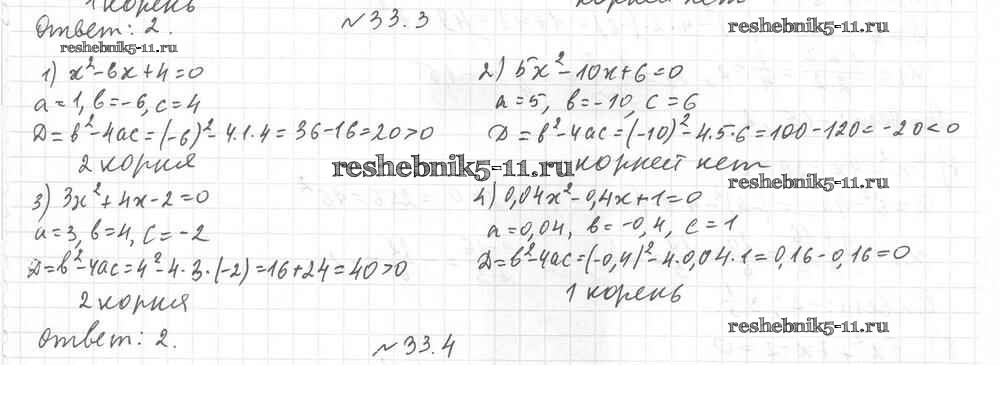 1 корень
корней нет
Ответ: 2.
№33.3
reshebnik5-11.ru
reshebnik5-11.ru
1) x²-6x+4=0
2) 5x²-10x+6=0
a=1, b=-6, c=4
a=5, b=-10, c=6
D=b²-4ac=(-6)²-4.1.4=36-16=20>0
D=b²-4ac=(-10)²-4.5.6=100-120=-20<0
2 корня
reshebnik5-11.ru
корней нет
reshebnik5-11.ru
3) 3x²+4x-2=0
4) 0,04x²-0,4x+1=0
a=3, b=4, c=-2
a=0,04, b=-0,4, c=1
D=b²-4ac=4²-4·3·(-2)=16+24=40>0
D=b²-4ac=(-0,4)²-4.0,04.1=0,16-0,16=0
2 корня
1 корень
reshebnik5-11.ru
Ответ: 2.
№33.4